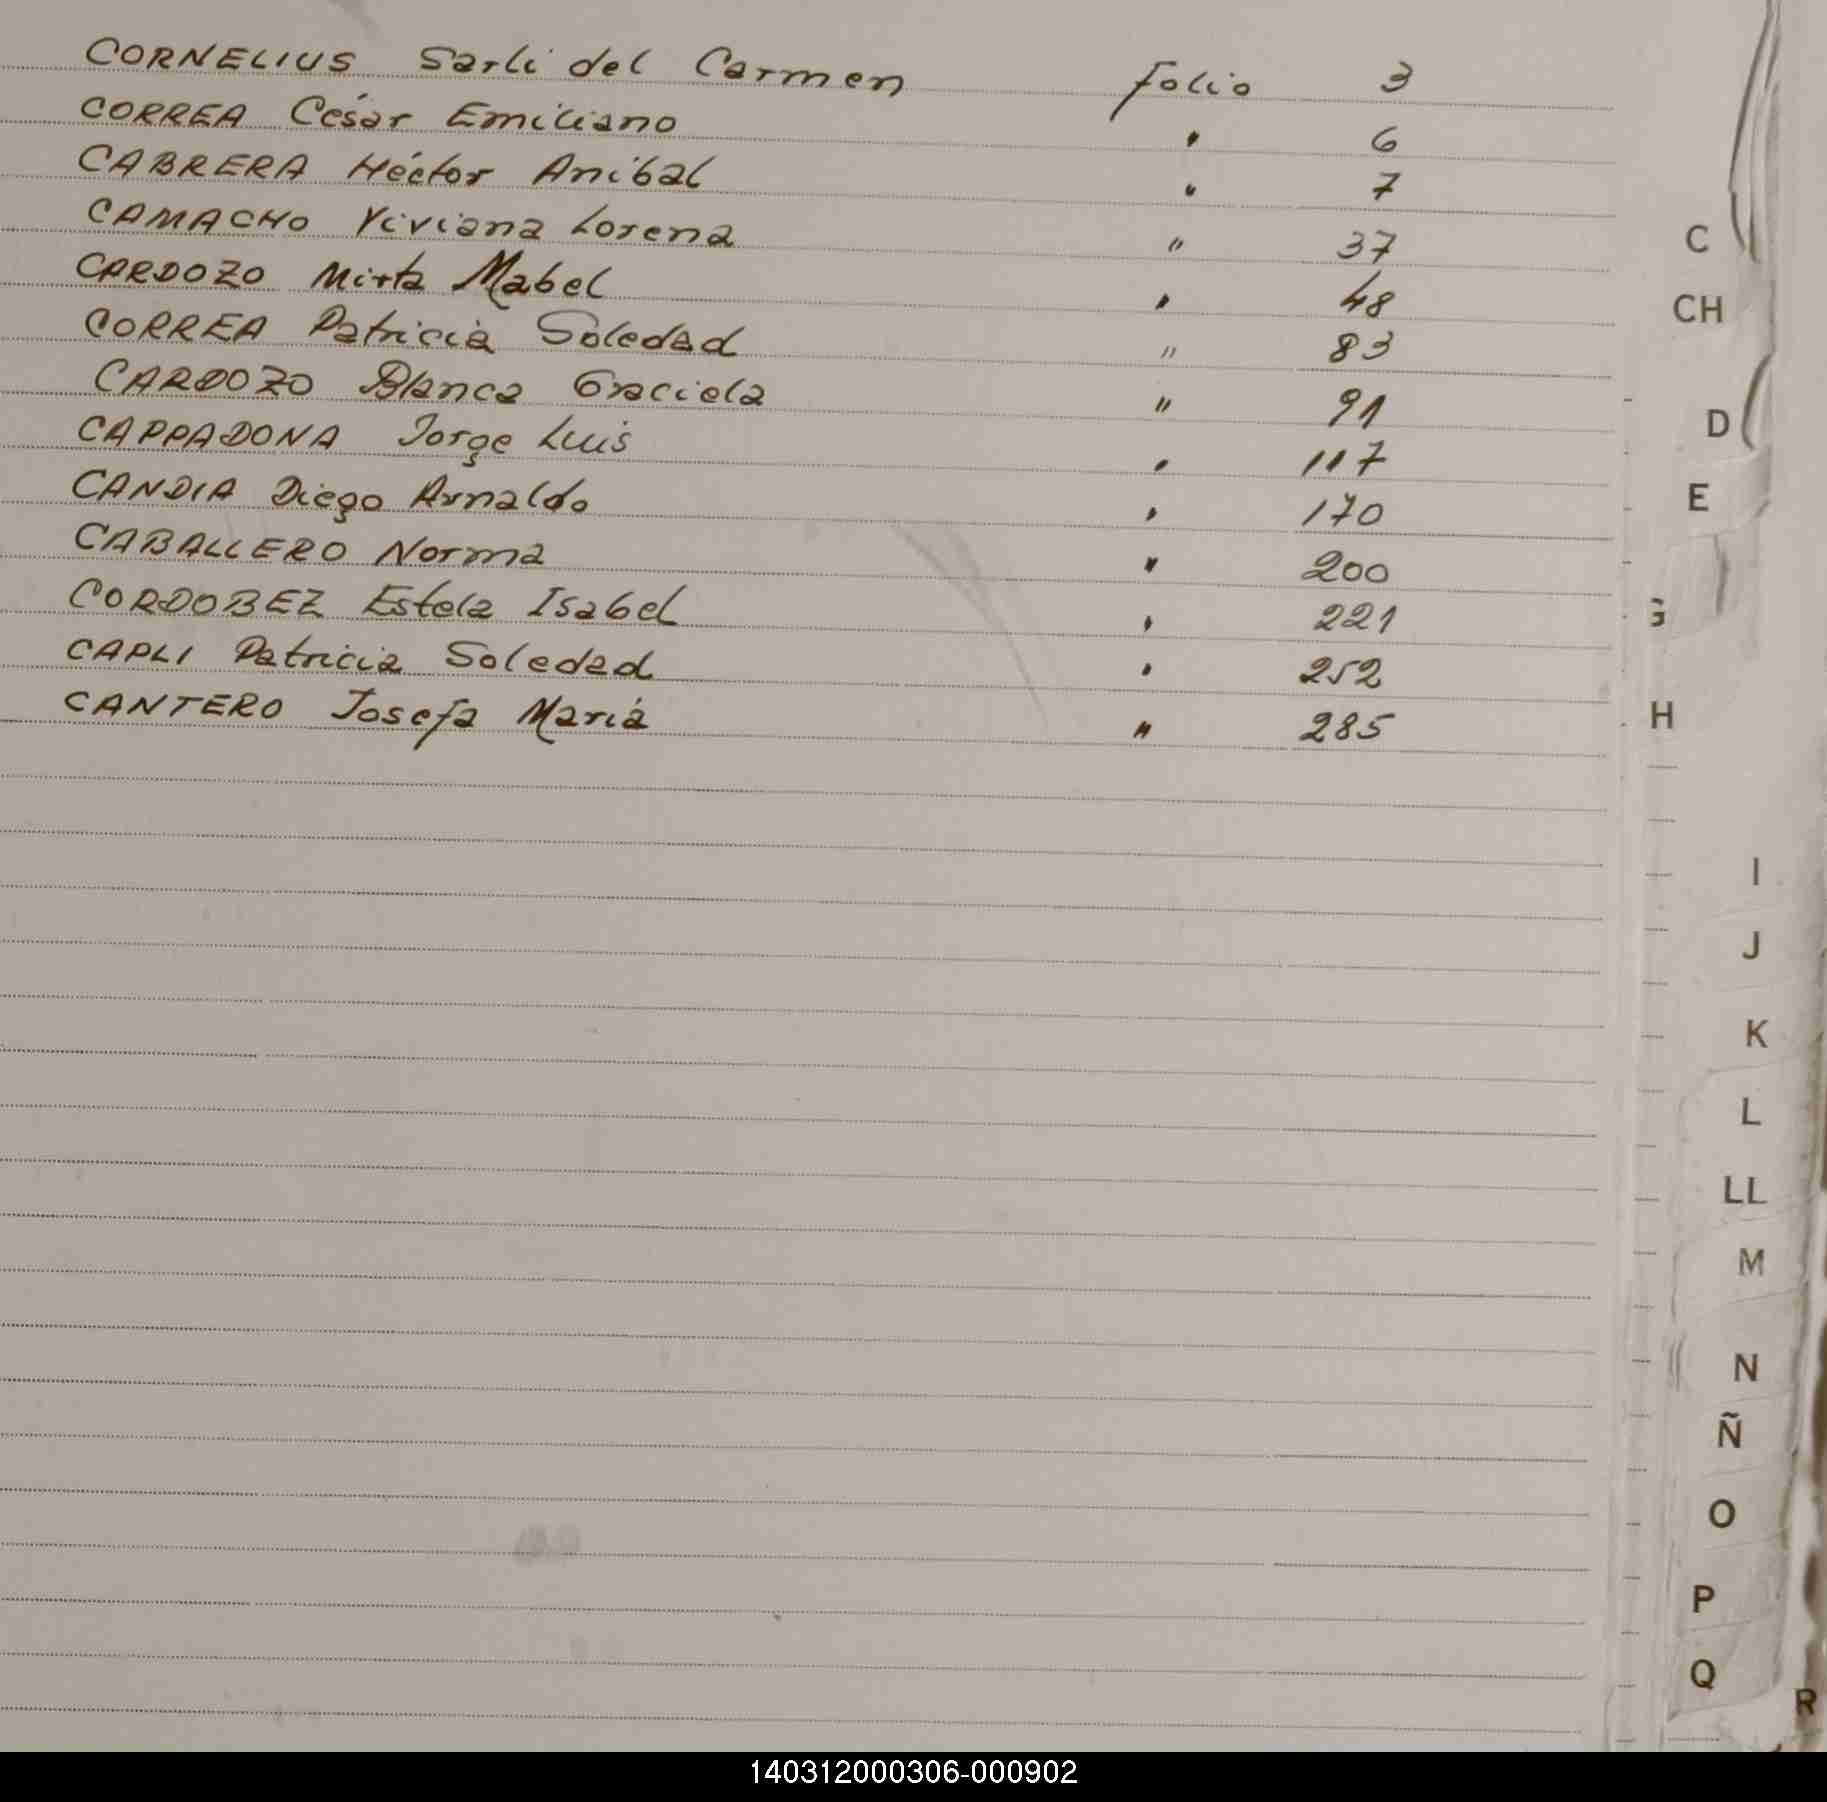 CORNELIUS Sarli del Carmen folio 3
CORREA César Emiliano " 6
CABRERA Héctor Anibal " 7
CAMACHO Viviana Lorena " 37
CARDOZO Mirta Mabel " 48
CORREA Patricia Soledad " 83
CARDOZO Blanca Graciela " 91
CAPPADONA Jorge Luis " 117
CANDIA Diego Arnaldo " 170
CABALLERO Norma " 200
CORDOBEZ Estela Isabel " 221
CAPLI Patricia Soledad " 252
CANTERO Josefa María " 285
C
CH
D
E
G
H
I
J
K
L
LL
M
N
Ñ
O
P
Q
R
140312000306-000902